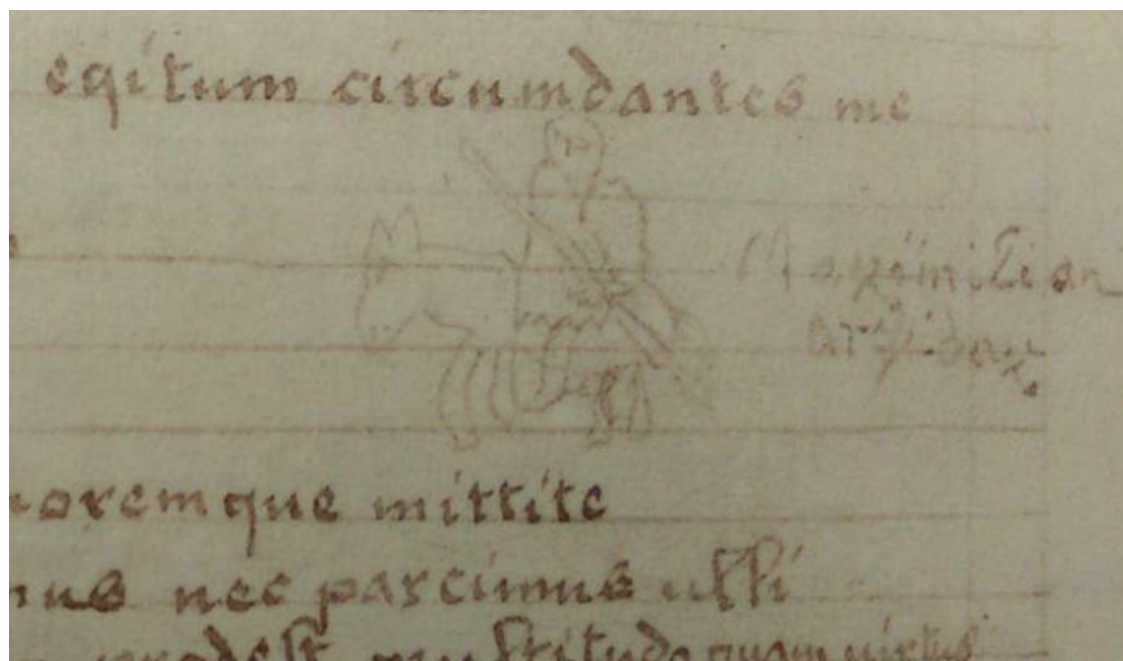 eqitum circumdantes me
Maximilian
oremque mittite
nus nec parcimus ulli
prodest multitudo quam virtus